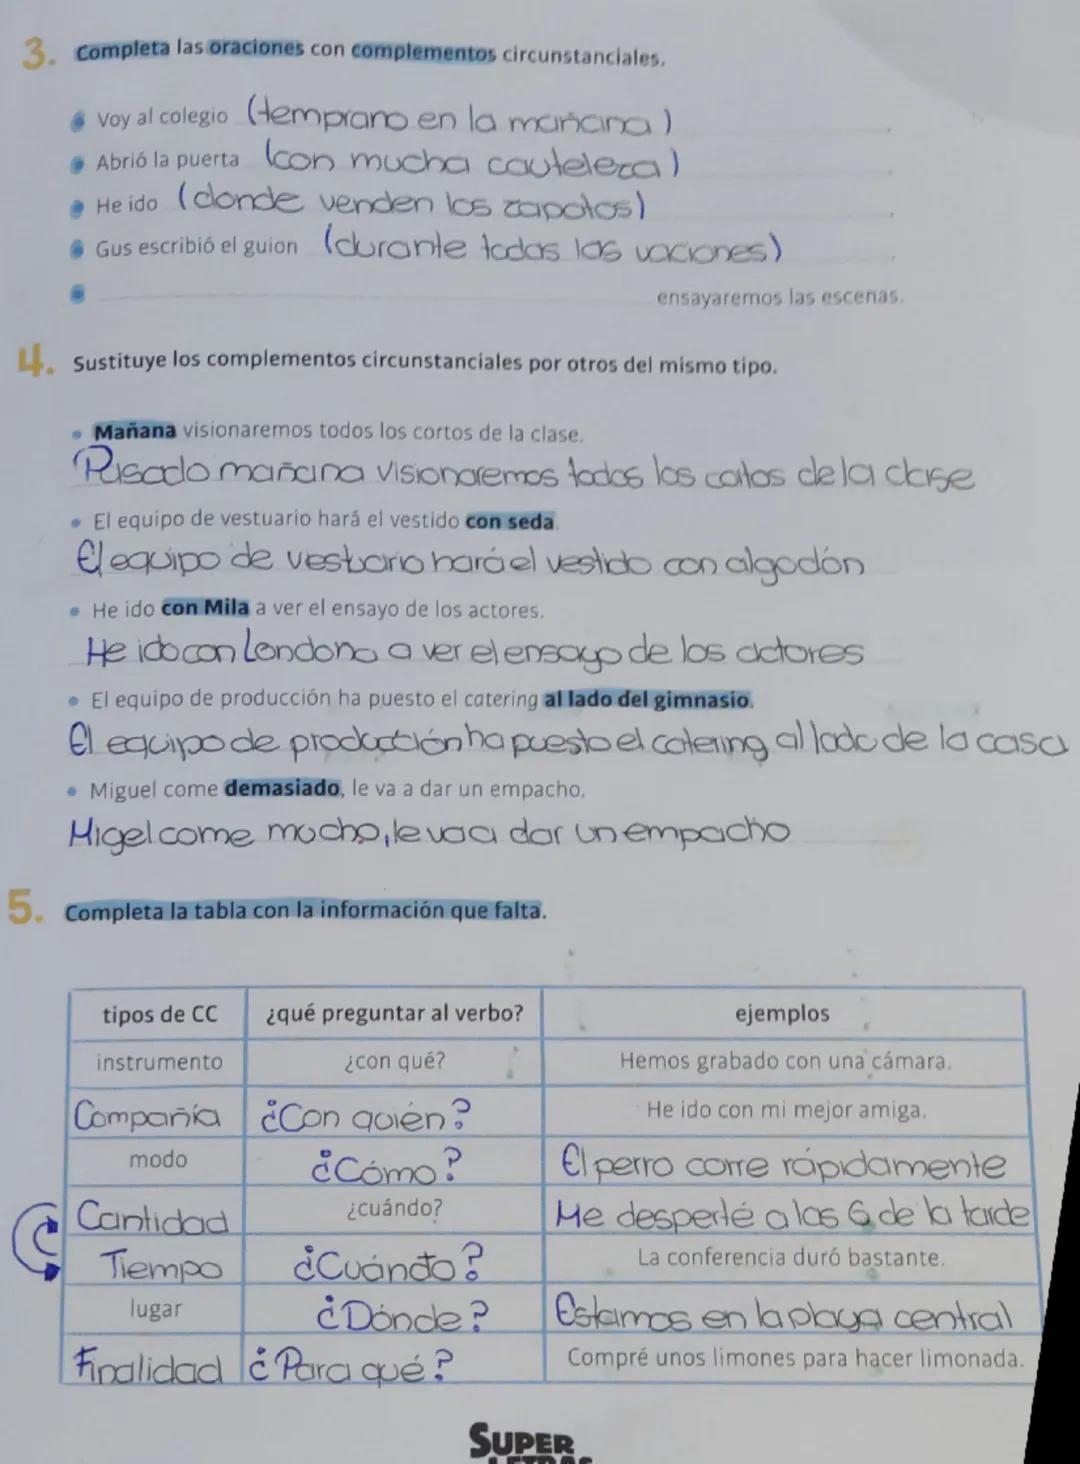 3. Completa las oraciones con complementos circunstanciales.
Voy al colegio (temprano en la mañana)
Abrió la puerta (con mucha cauteleza)
He ido (donde venden los zapatos)
Gus escribió el guion (durante todas las vaciones)
ensayaremos las escenas.
4. Sustituye los complementos circunstanciales por otros del mismo tipo.
Mañana visionaremos todos los cortos de la clase.
Pasado mañana visionaremos todos los cortos de la clase
El equipo de vestuario hará el vestido con seda.
El equipo de vestuario hará el vestido con algodón
He ido con Mila a ver el ensayo de los actores.
He ido con Londona a ver el ensayo de los actores
El equipo de producción ha puesto el catering al lado del gimnasio.
El equipo de producción ha puesto el catering al lado de la casa
Miguel come demasiado, le va a dar un empacho.
Migel come mucho, le va a dar un empacho
5. Completa la tabla con la información que falta.
tipos de CC ¿qué preguntar al verbo? ejemplos
instrumento ¿con qué? Hemos grabado con una cámara.
Compañía ¿Con quién? He ido con mi mejor amiga.
modo ¿Cómo? El perro corre rápidamente
Cantidad ¿cuándo? Me desperté a las 6 de la tarde
Tiempo ¿Cuándo? La conferencia duró bastante.
lugar ¿Dónde? Estamos en la playa central
Finalidad ¿Para qué? Compré unos limones para hacer limonada.
SUPER
LETRAS